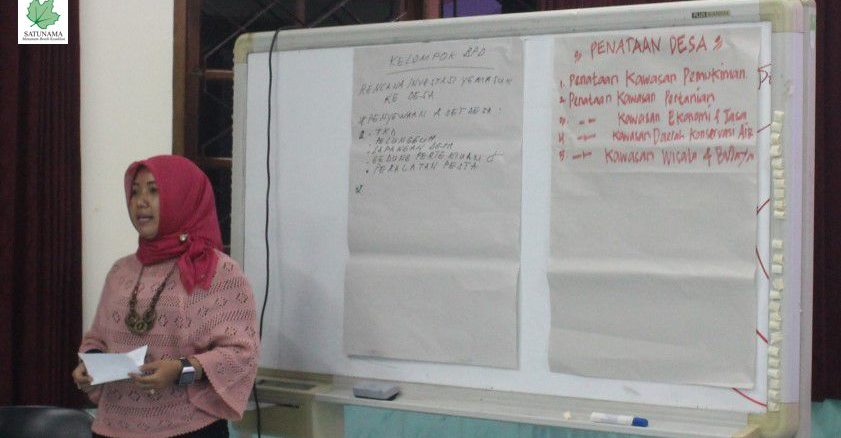 SATUNAMA
KELOMPOK BPD
RENCANA INVESTASI YEMASUK
KE DESA
PENYEWAAN ASET DESA :
TKD
PELUNGGUH
LAPANGAN DESA
GEDUNG PERTEMUAN
PERALATAN PESTA
2
PENATAAN DESA
1. Penataan Kawasan Pemukiman
2. Penataan Kawasan Pertanian
3. -"- Kawasan Ekonomi & Jasa
4. -"- Kawasan Daerah Konservasi Air
5. -"- Kawasan Wisata & Budaya